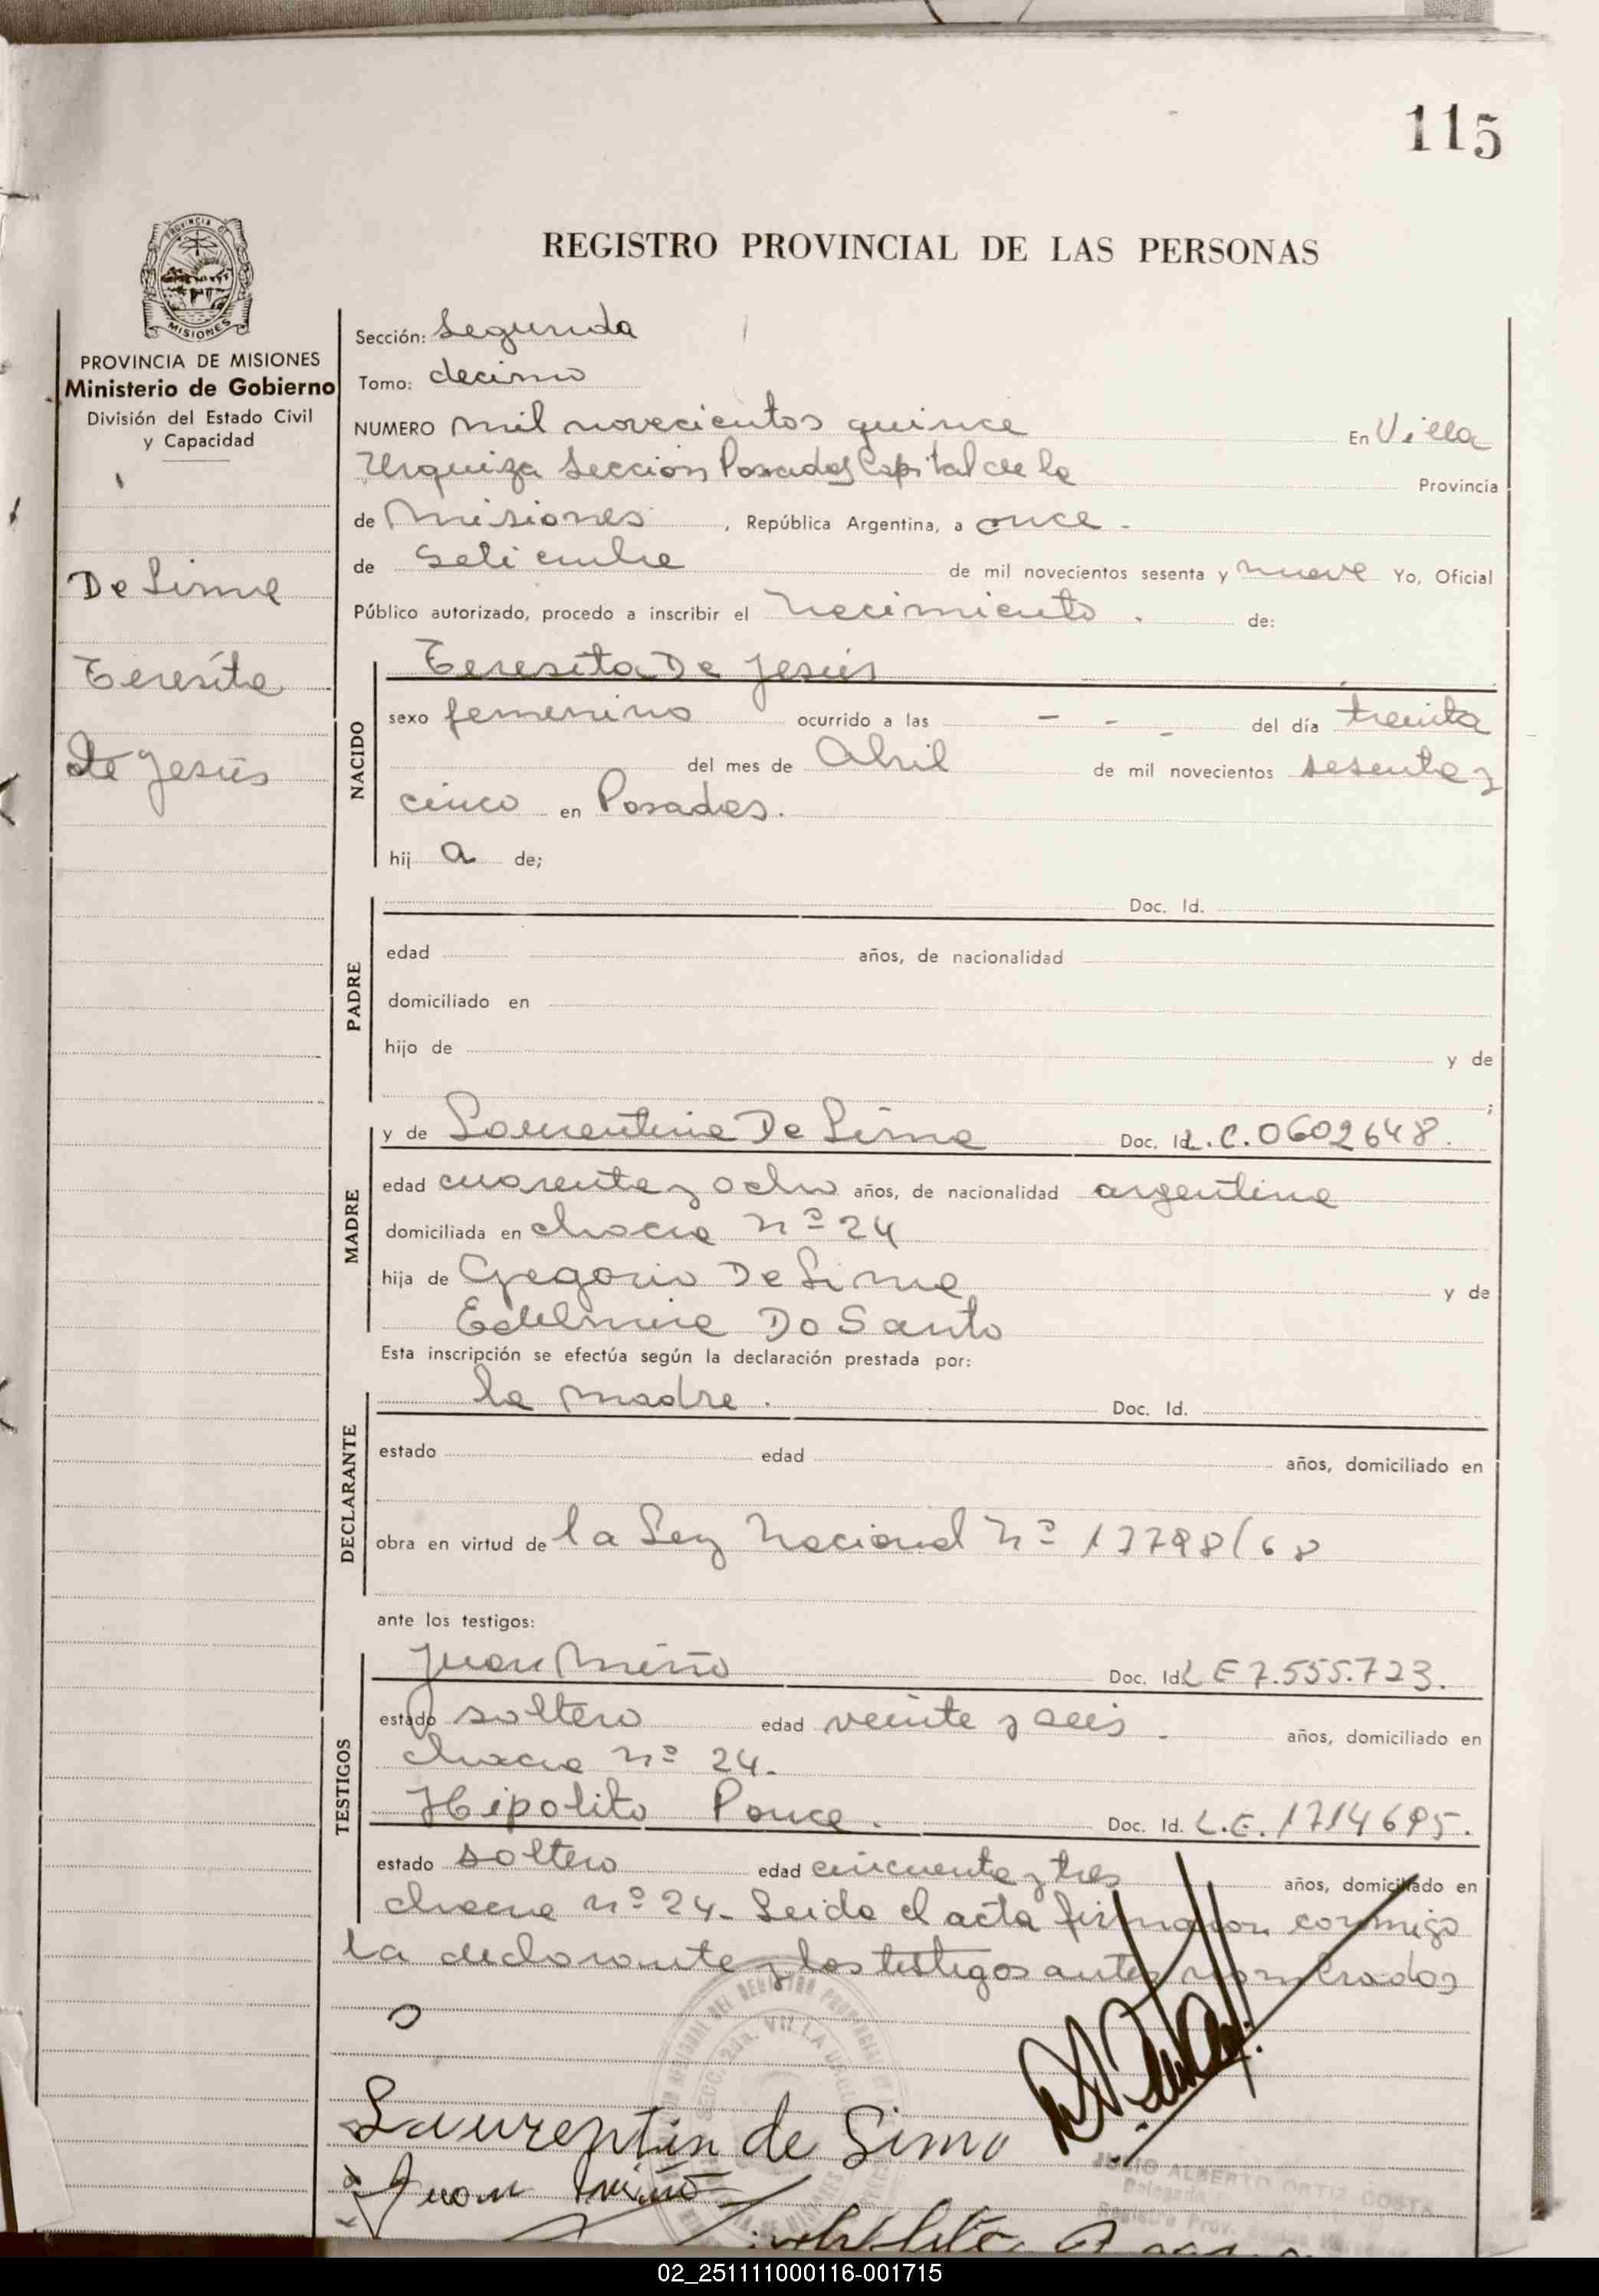 115
REGISTRO PROVINCIAL DE LAS PERSONAS
PROVINCIA DE
MISIONES
PROVINCIA DE MISIONES
Ministerio de Gobierno
División del Estado Civil
y Capacidad
De Lima
Teresita
De Jesús
Sección: Segunda
Tomo: decimo
NUMERO mil novecientos quince En Villa
Urquiza Sección Posadas Capital de la Provincia
de Misiones, República Argentina, a once.
de Setiembre de mil novecientos sesenta y nueve Yo, Oficial
Público autorizado, procedo a inscribir el nacimiento. de:
NACIDO
Teresita De Jesús
sexo femenino ocurrido a las - - - del día treinta
del mes de Abril de mil novecientos sesenta y
cinco en Posadas.
hij a de;
PADRE
Doc. Id.
edad años, de nacionalidad
domiciliado en
hijo de y de
;
MADRE
y de Laurentina De Lima Doc. Id L.C. 0602648.
edad cuarenta y ocho años, de nacionalidad argentina
domiciliada en chacra nº 24
hija de Gregorio De Lima y de
Edelmira Do Santo
Esta inscripción se efectúa según la declaración prestada por:
DECLARANTE
la madre. Doc. Id.
estado edad años, domiciliado en
obra en virtud de la Ley Nacional Nº 17798/68
ante los testigos:
TESTIGOS
Juan Miño Doc. Id L E 7.555.723.
estado soltero edad veinte y seis - años, domiciliado en
chacra nº 24.
Hipolito Ponce. Doc. Id. L.E. 1714695.
estado soltero edad cincuenta y tres años, domiciliado en
chacra nº 24. Leida el acta firmaron conmigo
la declarante y los testigos antes nombrados
Laurentin de Lima
Juan Miño
JULIO ALBERTO ORTIZ COSTA
Delegado
Registro Prov.
02_251111000116-001715